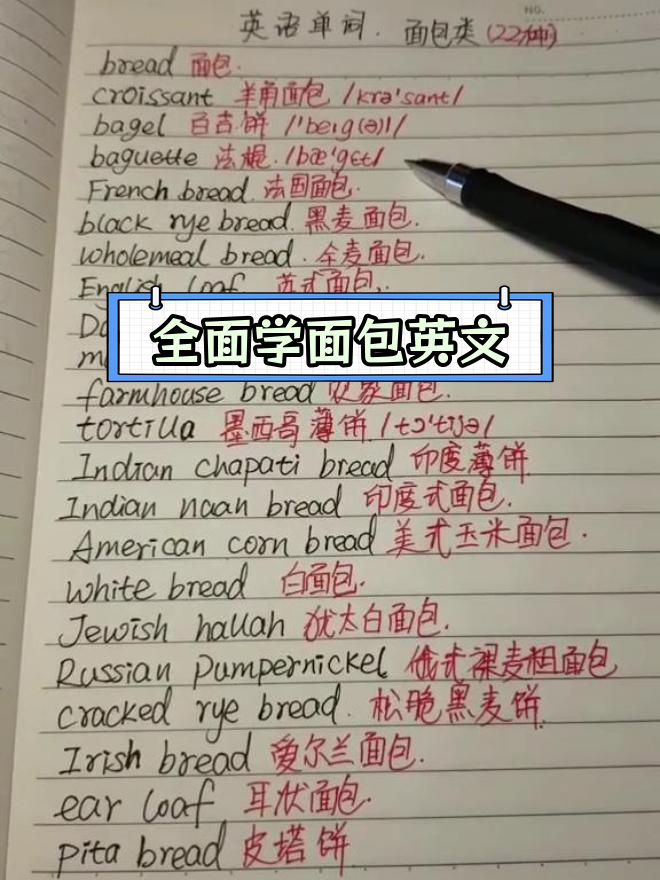 NO.
英语单词. 面包类(22种)
bread 面包.
croissant 羊角面包 /krə'sant/
bagel 百吉饼 /'beɪg(ə)l/
baguette 法棍. /bæ'gɛt/
French bread. 法国面包.
black rye bread. 黑麦面包.
wholemeal bread. 全麦面包.
English loaf 苏式面包.
全面学面包英文
farmhouse bread 农家面包.
tortilla 墨西哥薄饼 /tɔ'tijə/
Indian chapati bread 印度薄饼
Indian naan bread 印度式面包.
American corn bread 美式玉米面包.
white bread 白面包.
Jewish hallah 犹太白面包.
Russian Pumpernickel 俄式裸麦粗面包
cracked rye bread. 松脆黑麦饼
Irish bread 爱尔兰面包.
ear loaf 耳状面包.
pita bread 皮塔饼